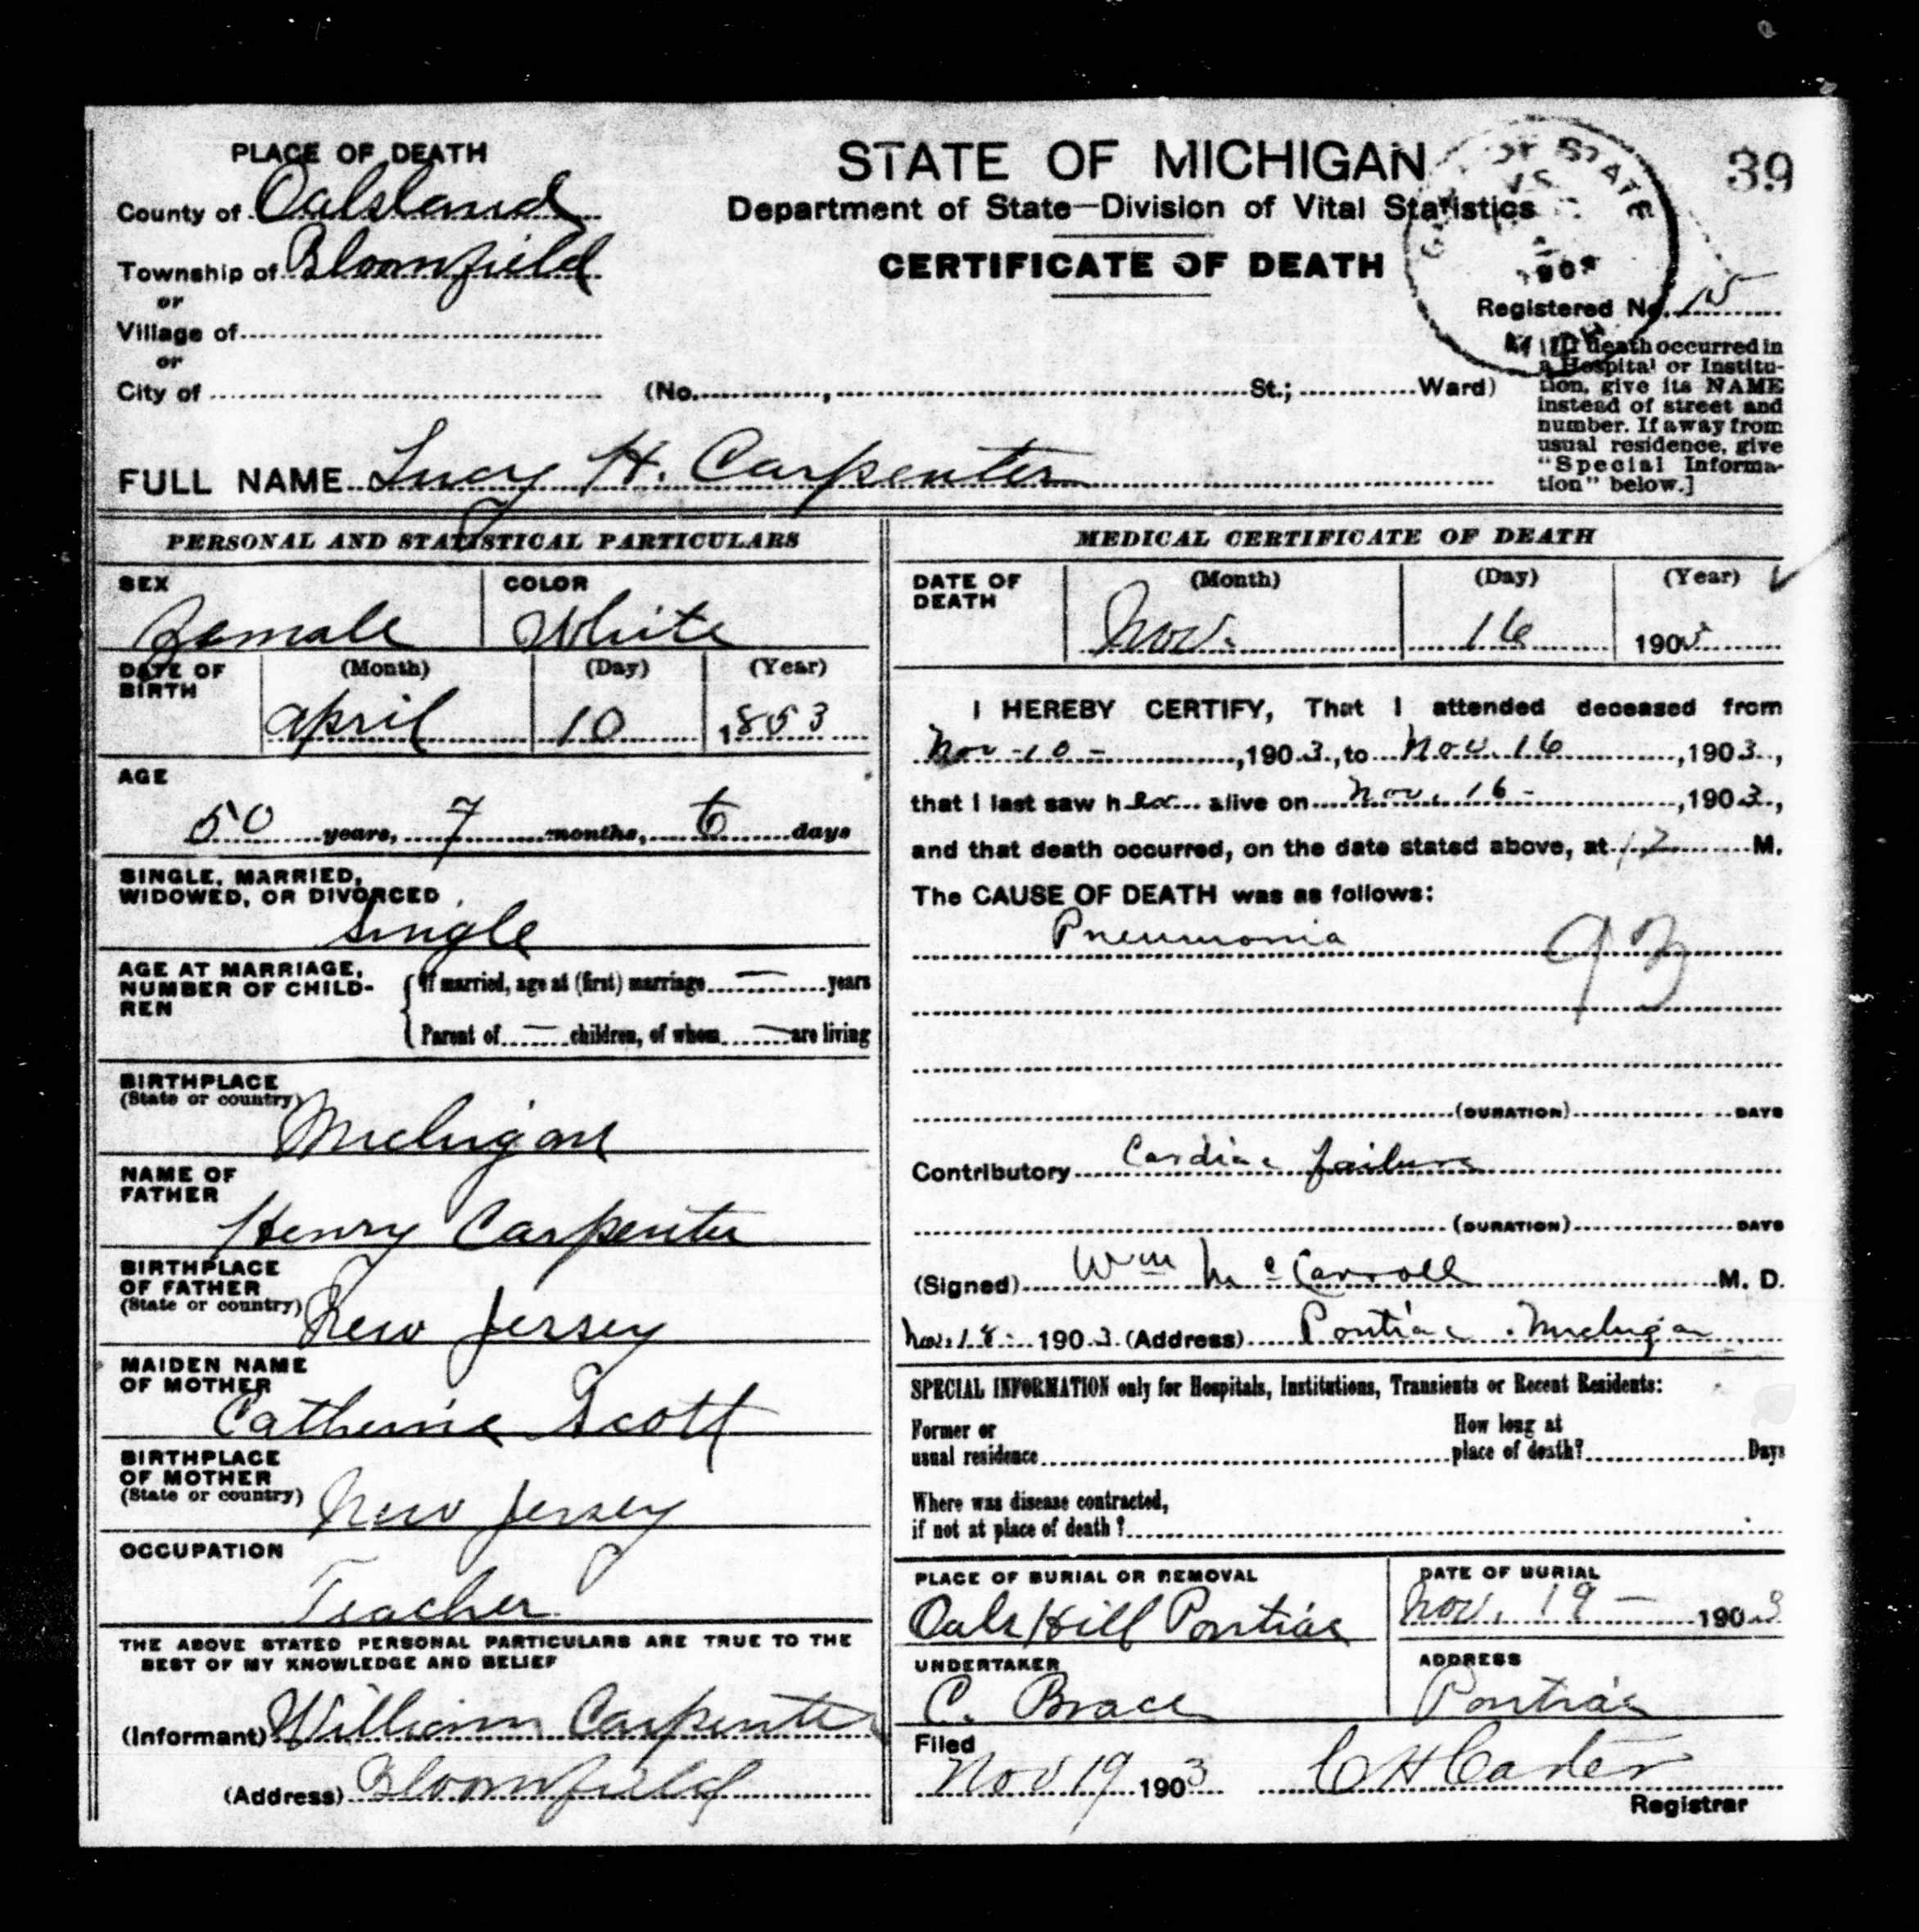 PLACE OF DEATH
County of Oakland
Township of Bloomfield
or
Village of
or
City of
STATE OF MICHIGAN
Department of State—Division of Vital Statistics
CERTIFICATE OF DEATH
39
OF STATE
Registered No. 15
(No. , St.; Ward)
death occurred in
a Hospital or Institu-
tion, give its NAME
instead of street and
number. If away from
usual residence, give
"Special Informa-
tion" below.]
FULL NAME Lucy H. Carpenter
PERSONAL AND STATISTICAL PARTICULARS
SEX
Female
COLOR
White
DATE OF BIRTH
(Month) (Day) (Year)
April 10 1853
AGE
50 years, 7 months, 6 days
SINGLE, MARRIED,
WIDOWED, OR DIVORCED
Single
AGE AT MARRIAGE,
NUMBER OF CHILD-
REN
If married, age at (first) marriage — years
Parent of — children, of whom — are living
BIRTHPLACE
(State or country)
Michigan
NAME OF
FATHER
Henry Carpenter
BIRTHPLACE
OF FATHER
(State or country)
New Jersey
MAIDEN NAME
OF MOTHER
Catherine Scott
BIRTHPLACE
OF MOTHER
(State or country)
New Jersey
OCCUPATION
Teacher
THE ABOVE STATED PERSONAL PARTICULARS ARE TRUE TO THE
BEST OF MY KNOWLEDGE AND BELIEF
(Informant) William Carpenter
(Address) Bloomfield
MEDICAL CERTIFICATE OF DEATH
DATE OF
DEATH
(Month) (Day) (Year)
Nov. 16 190
I HEREBY CERTIFY, That I attended deceased from
Nov-10-, 1903, to Nov. 16, 1903,
that I last saw her alive on Nov. 16-, 1903,
and that death occurred, on the date stated above, at 12 M.
The CAUSE OF DEATH was as follows:
Pneumonia 93
(DURATION) DAYS
Contributory Cardiac failure
(DURATION) DAYS
(Signed) Wm McCarroll M. D.
Nov. 18- 1903 (Address) Pontiac. Michigan
SPECIAL INFORMATION only for Hospitals, Institutions, Transients or Recent Residents:
Former or
usual residence
How long at
place of death? Days
Where was disease contracted,
if not at place of death?
PLACE OF BURIAL OR REMOVAL
Oak Hill Pontiac
DATE OF BURIAL
Nov. 19 — 1903
UNDERTAKER
C. Brace
ADDRESS
Pontiac
Filed
Nov 19 1903 C H Carter
Registrar